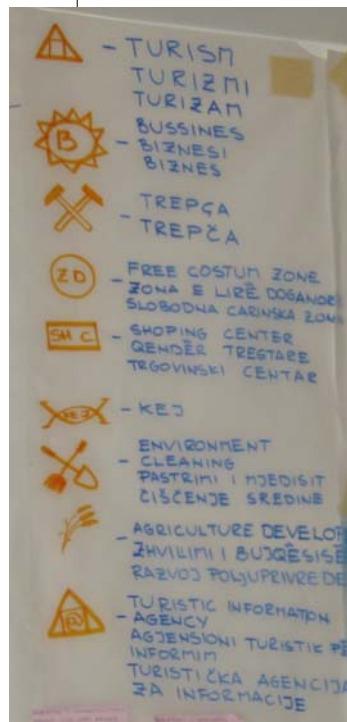 - TURISM
TURIZMI
TURIZAM
B
BUSSINES
- BIZNESI
BIZNES
- TREPÇA
TREPČA
ZD
- FREE COSTUM ZONE
ZONA E LIRË DOGANORE
SLOBODNA CARINSKA ZONA
SH C
- SHOPING CENTER
QENDËR TREGTARE
TRGOVINSKI CENTAR
KEJ
- KEJ
ENVIRONMENT
- CLEANING
PASTRIMI I MJEDISIT
ČIŠČENJE SREDINE
- AGRICULTURE DEVELOP
ZHVILIMI I BUJQËSISË
RAZVOJ POLJUPRIVREDE
TURISTIC INFORMATON
- AGENCY
AGJENSIONI TURISTIK PË
INFORMIM
TURISTIČKA AGENCIJA
ZA INFORMACIJE